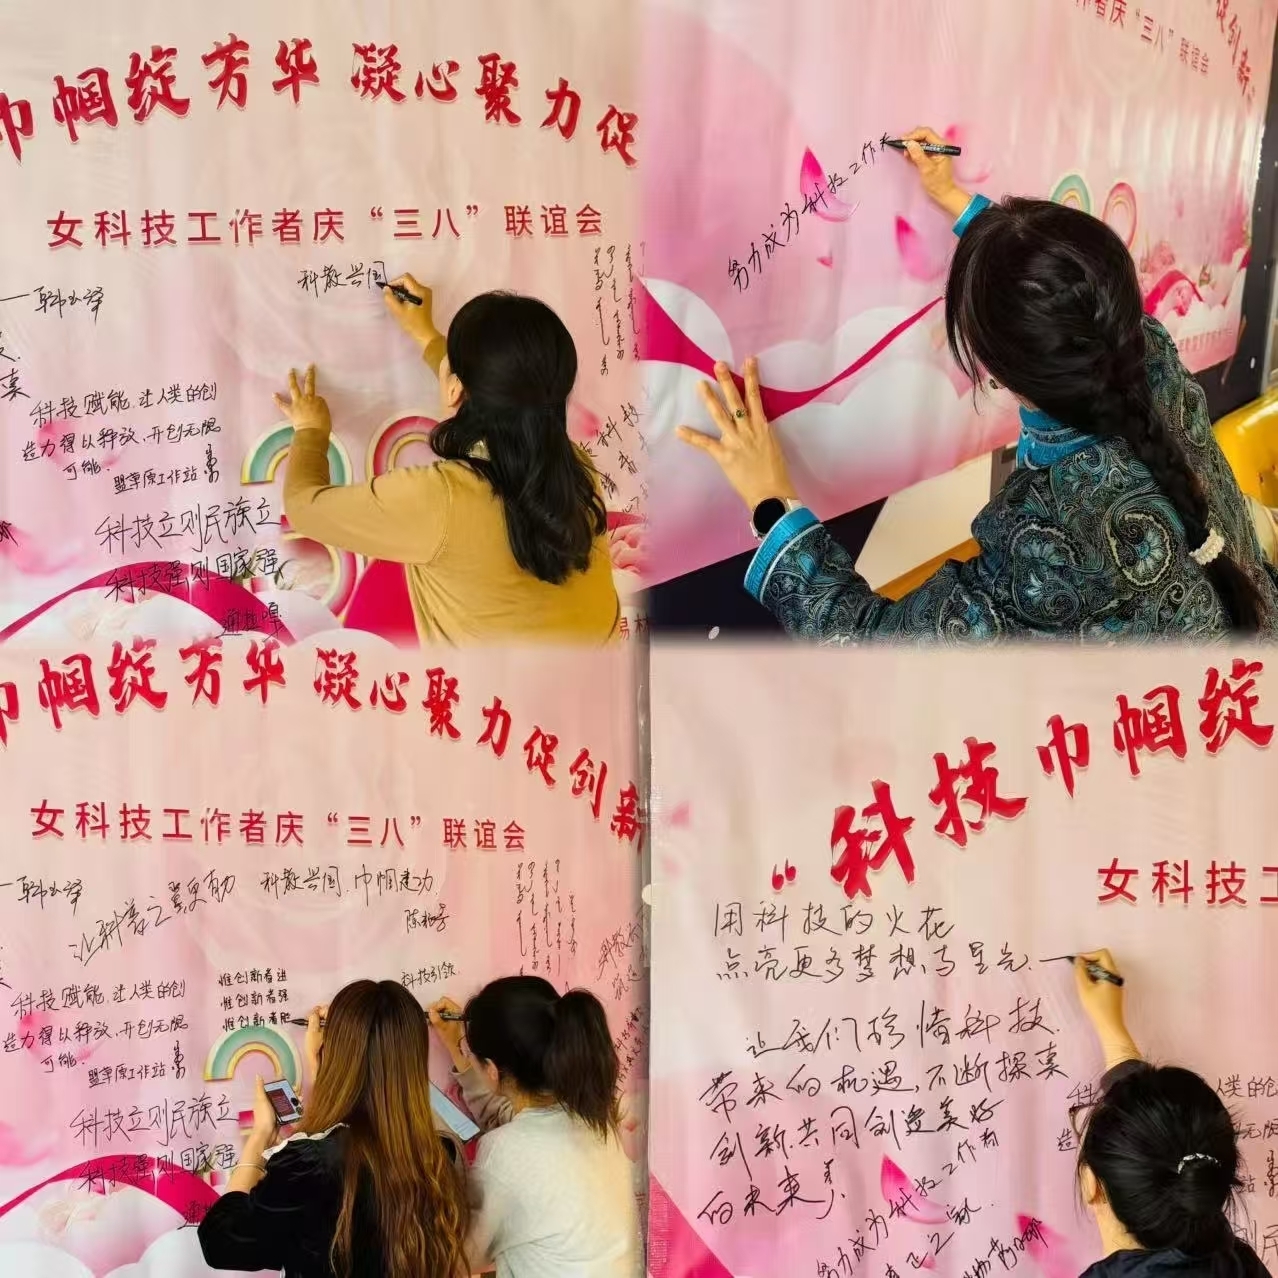 巾帼绽芳华 凝心聚力促
女科技工作者庆“三八”联谊会
科教兴国
科技赋能,让人类的创
造力得以释放,开创无限
可能.
盟草原工作站
科技立则民族立
科技强则国家强
通拉嘎
作者庆“三八”联谊会
促创新
努力成为科技工作者
巾帼绽芳华 凝心聚力促创新
女科技工作者庆“三八”联谊会
让科普之翼更有力
科教兴国,巾帼建功.
惟创新者进
惟创新者强
惟创新者胜
科技引领
科技赋能,让人类的创
造力得以释放,开创无限
可能.
盟草原工作站
科技立则民族立
科技强则国家强
“科技巾帼绽
女科技工
用科技的火花
点亮更多梦想与星光.
让我们珍惜科技
带来的机遇,不断探索
创新.共同创造美好
的未来!
努力成为科技工作者
人类的创